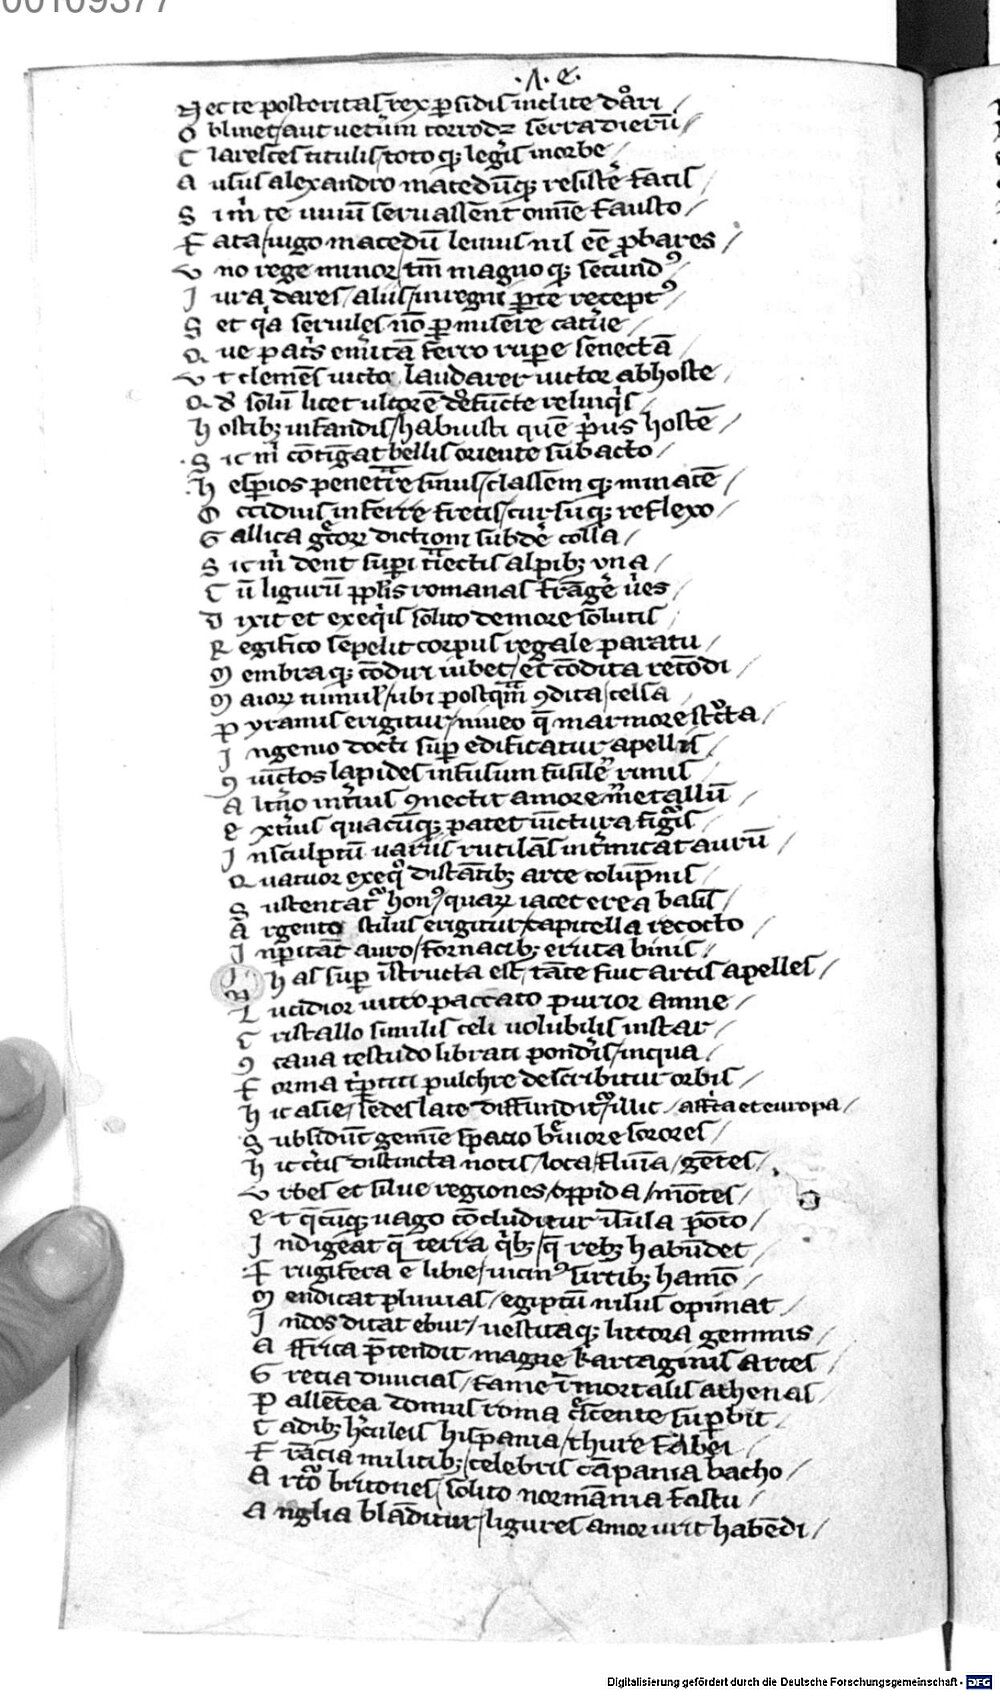 00109377
·A· e·
Nec te posteritas rex ꝑsidis inclite dari /
O blineget aut uetm̄ corrodꝫ serra dierū /
C laresces titulis / toto qꝫ legˀis in orbe /
A usus alexandro macedūqꝫ resistˀe fatis /
S i mˀ te uiuū seruassent omīe fausto /
F ata / iugo macedū leuius nil eē ꝓbares /
V no rege minor / tm̄ magno qꝫ secundꝰ
I ura dares / aliis / in regni ꝑte receptꝰ /
S et qͥa seruiles nō ꝑmisere catˀue /
Q ue pat̄s emˀitā ferro ruꝑe senectā
V t clemēs uicto laudarer uictor ab hoste /
Q đ solū licet ultorē defūcte relinqͥs /
H ostibꝫ infandis / habuisti quē pͥus hostē /
S ic mˀ cōtīgat bellis oriente subacto /
H esꝑios penetrare sinus / classem qꝫ minacē /
O cciduis inferre fretis / cursuqꝫ reflexo /
G allica gͣcoꝝ dictioni subdˀe colla /
S ic mˀ dent suꝑi tiectis alpibꝫ vna /
C ū ligurū ꝓplis romanas frāgˀe uˀes /
D ixit et exeqͥis solito de more solutis /
R egifico sepelit corpus regale paratu /
M embra qꝫ cōdiri iubet / et cōdita recōdi /
M aioꝝ tumul / ubi postqᷓm ꝯdita / celsa
P yramis erigitur / niueo q̄ marmore stˀcta /
I ngenio docti suꝑ edificatur apellis /
ꝯ iūctos lapides infusum fusile rimis
A ltˀno intˀius ꝯnectit amore metallū /
E xtˀius quacūqꝫ patet iūctura figͥis
I nsculptū uariis rutilās intˀmicat aurū /
Q uatuor ex eqͦ distātibꝫ arte columpnis /
S ustentatͬ honꝰ / quaꝝ iacet erea basis /
A rgento stilus erigitur / capitella recocto /
I nꝑitāt auro / fornacibꝫ eruta binis /
I h has suꝑ īstructa est / tāte fuit artis apelles /
L ucidior uitro paccato purior amne /
C ristallo similis celi uolubilis instar /
ꝯ caua testudo librati pondˀis / in qua /
F orma tˀꝑtiti pulchre describitur orbis /
H ic asie / sedes late diffunditͬ / illic / affˀca et europa /
S ubsidūt gemīe spatio bͤuiore sorores /
H ic cˀtis distincta notis / loca / flumīa / gētes /
V rbes et silue regiones / oppida / mōtes /
E t qͤcūqꝫ uago cōcluditur īsula pōto /
I ndigeat q̄ terra qͥbꝫ / q̄ rebꝫ habūdet
F rugifera ē libie / uicinꝰ sirtibꝫ hamō /
M endicat pluuias / egiptū nilus opimat /
I ndos ditat ebur / uestitaqꝫ littora gemmis /
A ffrica p̄tendit magne kartaginis arces /
G recia diuicias / fame īmortalis athenas /
P allētea domus roma cͬscente suꝑbit /
C adibꝫ hˀculeis hispania / thure sabei /
F rācia militibꝫ / celebris cāpania bacho /
A rtͦo britones / solito normānia fastu /
A nglia blāditur / ligures amor urit habēdi /
Digitalisierung gefördert durch die Deutsche Forschungsgemeinschaft - DFG